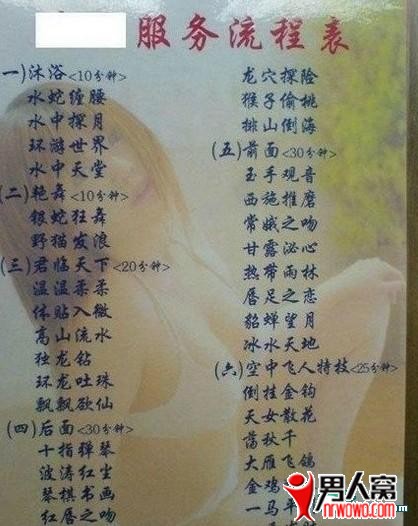 服务流程表
一)沐浴<10分钟>
水蛇缠腰
水中探月
环游世界
水中天堂
(二)艳舞<10分钟>
银蛇狂舞
野猫发浪
(三)君临天下<20分钟>
温温柔柔
体贴入微
高山流水
独龙钻
环龙吐珠
飘飘欲仙
(四)后面<30分钟>
十指弹琴
波涛红尘
琴棋书画
红唇之吻
龙穴探险
猴子偷桃
排山倒海
(五)前面<30分钟>
玉手观音
西施推磨
常娥之吻
甘露泌心
热带雨林
唇足之恋
貂蝉望月
冰水天地
(六)空中飞人特技<25分钟>
倒挂金钩
天女散花
荡秋千
大雁飞鸽
金鸡
一马平
男人窝
nrwowo.com